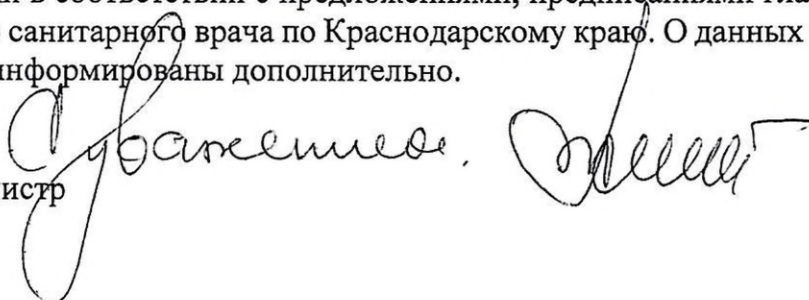 и в соответствии с предложениями, предписаниями гла
санитарного врача по Краснодарскому краю. О данных
информированы дополнительно.
С уважением,
истр